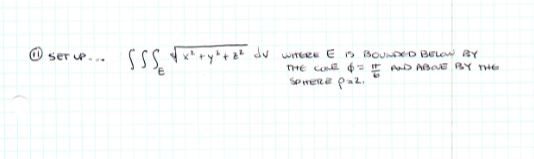 ⑪ SET UP... ∫∫∫_E √x²+y²+z² dv WHERE E IS BOUNDED BELOW BY
THE CONE ϕ = π/6 AND ABOVE BY THE
SPHERE ρ=2.